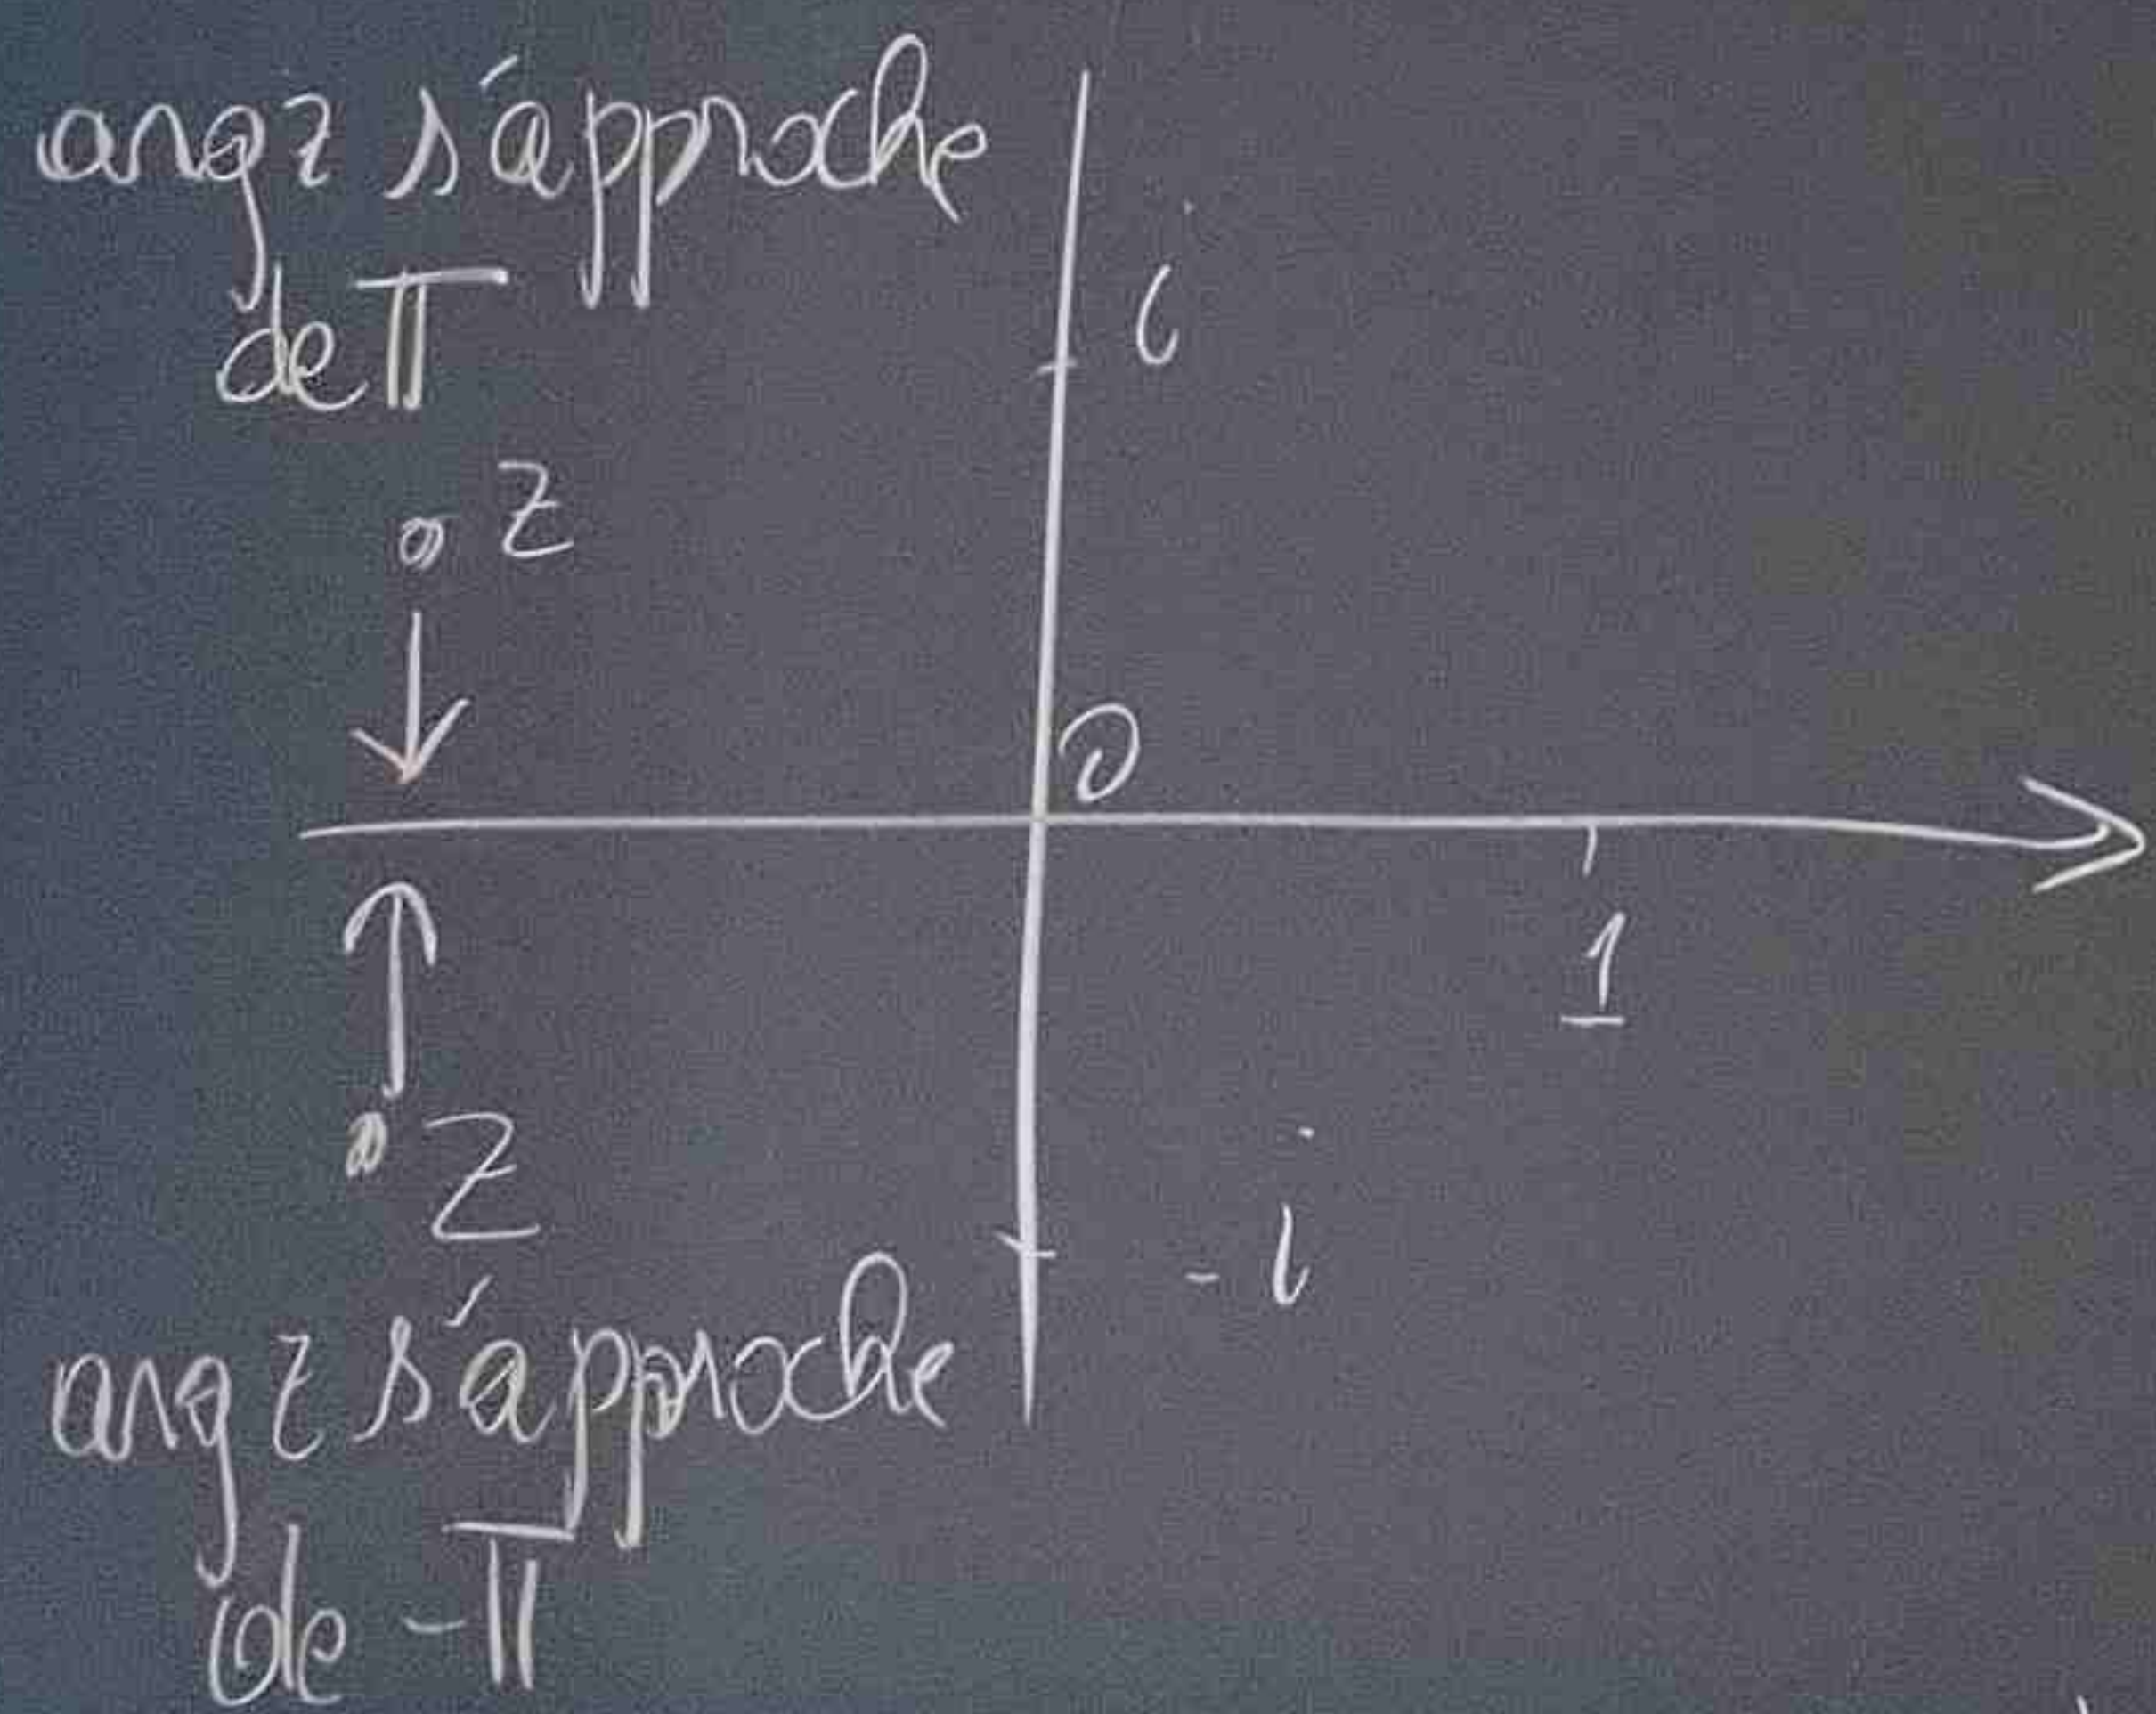 arg z s'approche
de π
i
z
0
1
z
- i
arg z s'approche
de -π